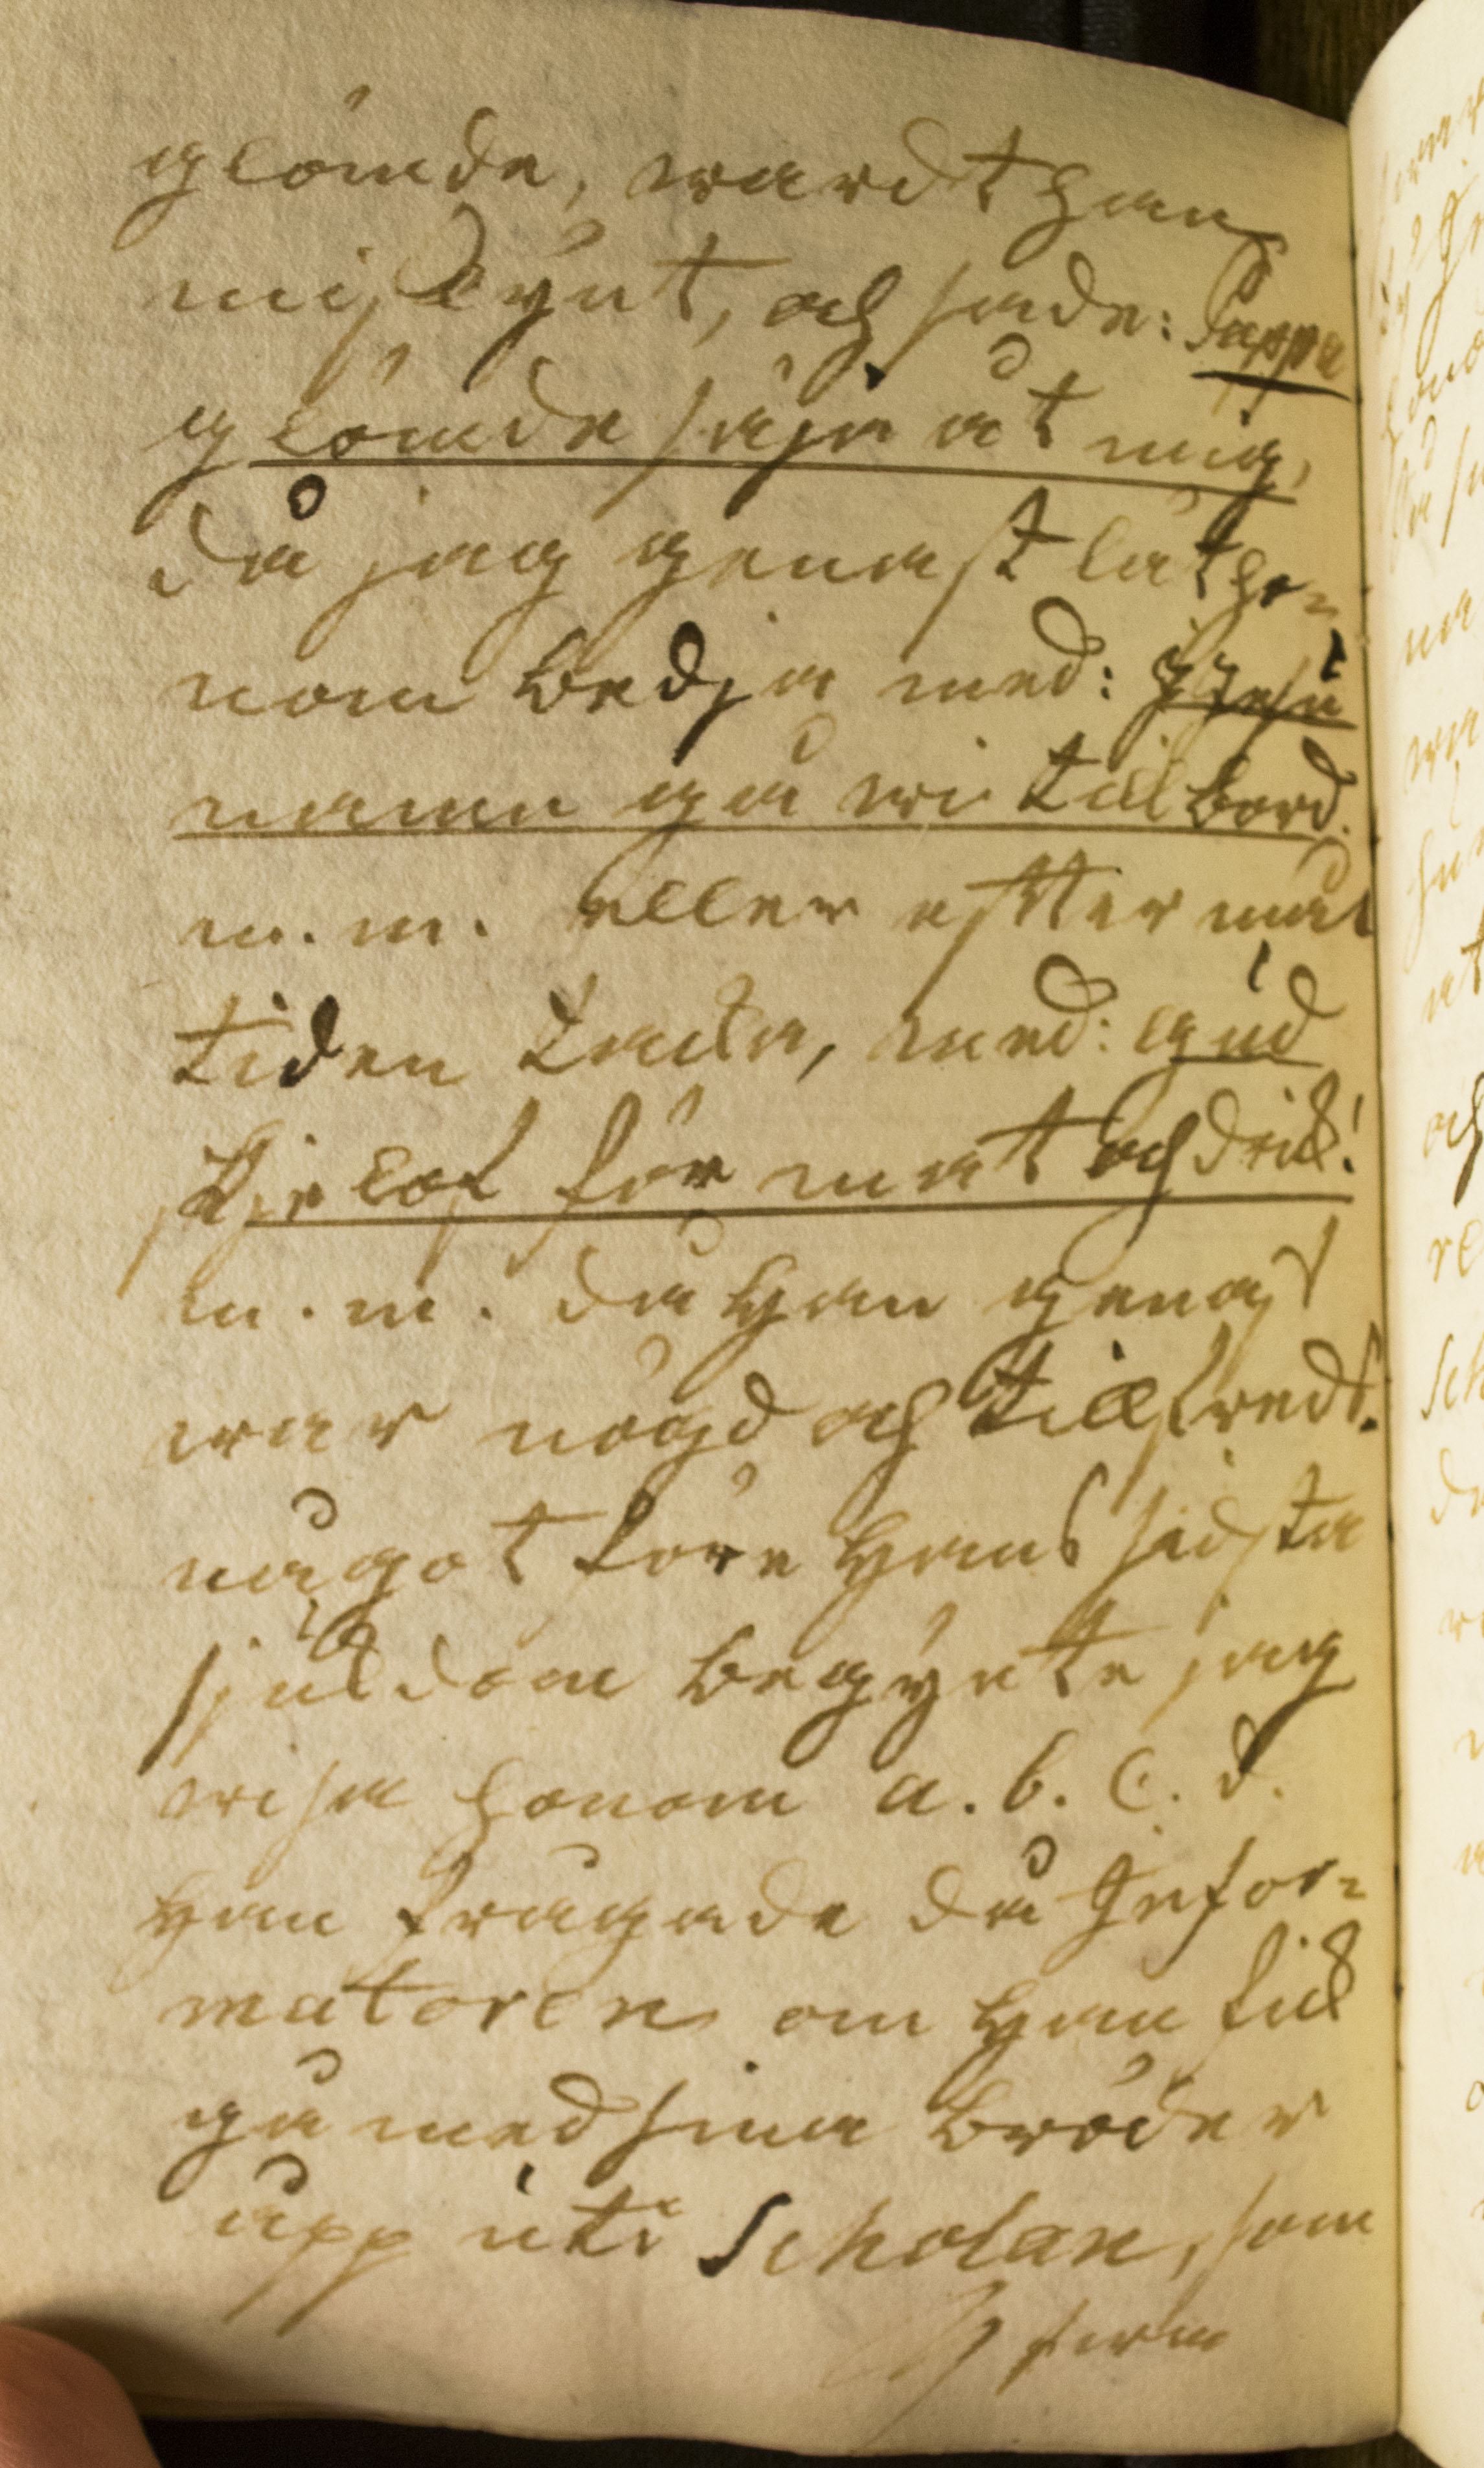 glömde, wardt han
mißlynt, och sade: Pappa
glömde säja åt mig,
då jag genast låt ho-
nom bedja med: I Jesu
namn gå wi till bord.
m. m. eller efter mål
tiden tacka, med: Gud
skje lof för mat och drick!
m. m. då han genast
war nögd och tillfreds.
något före hans sidsta
sjukdom begynte jag
wisa honom a. b. c. d.
han frågade då Infor-
matoren om han fick
gå med sina bröder
upp uti Scholan, som